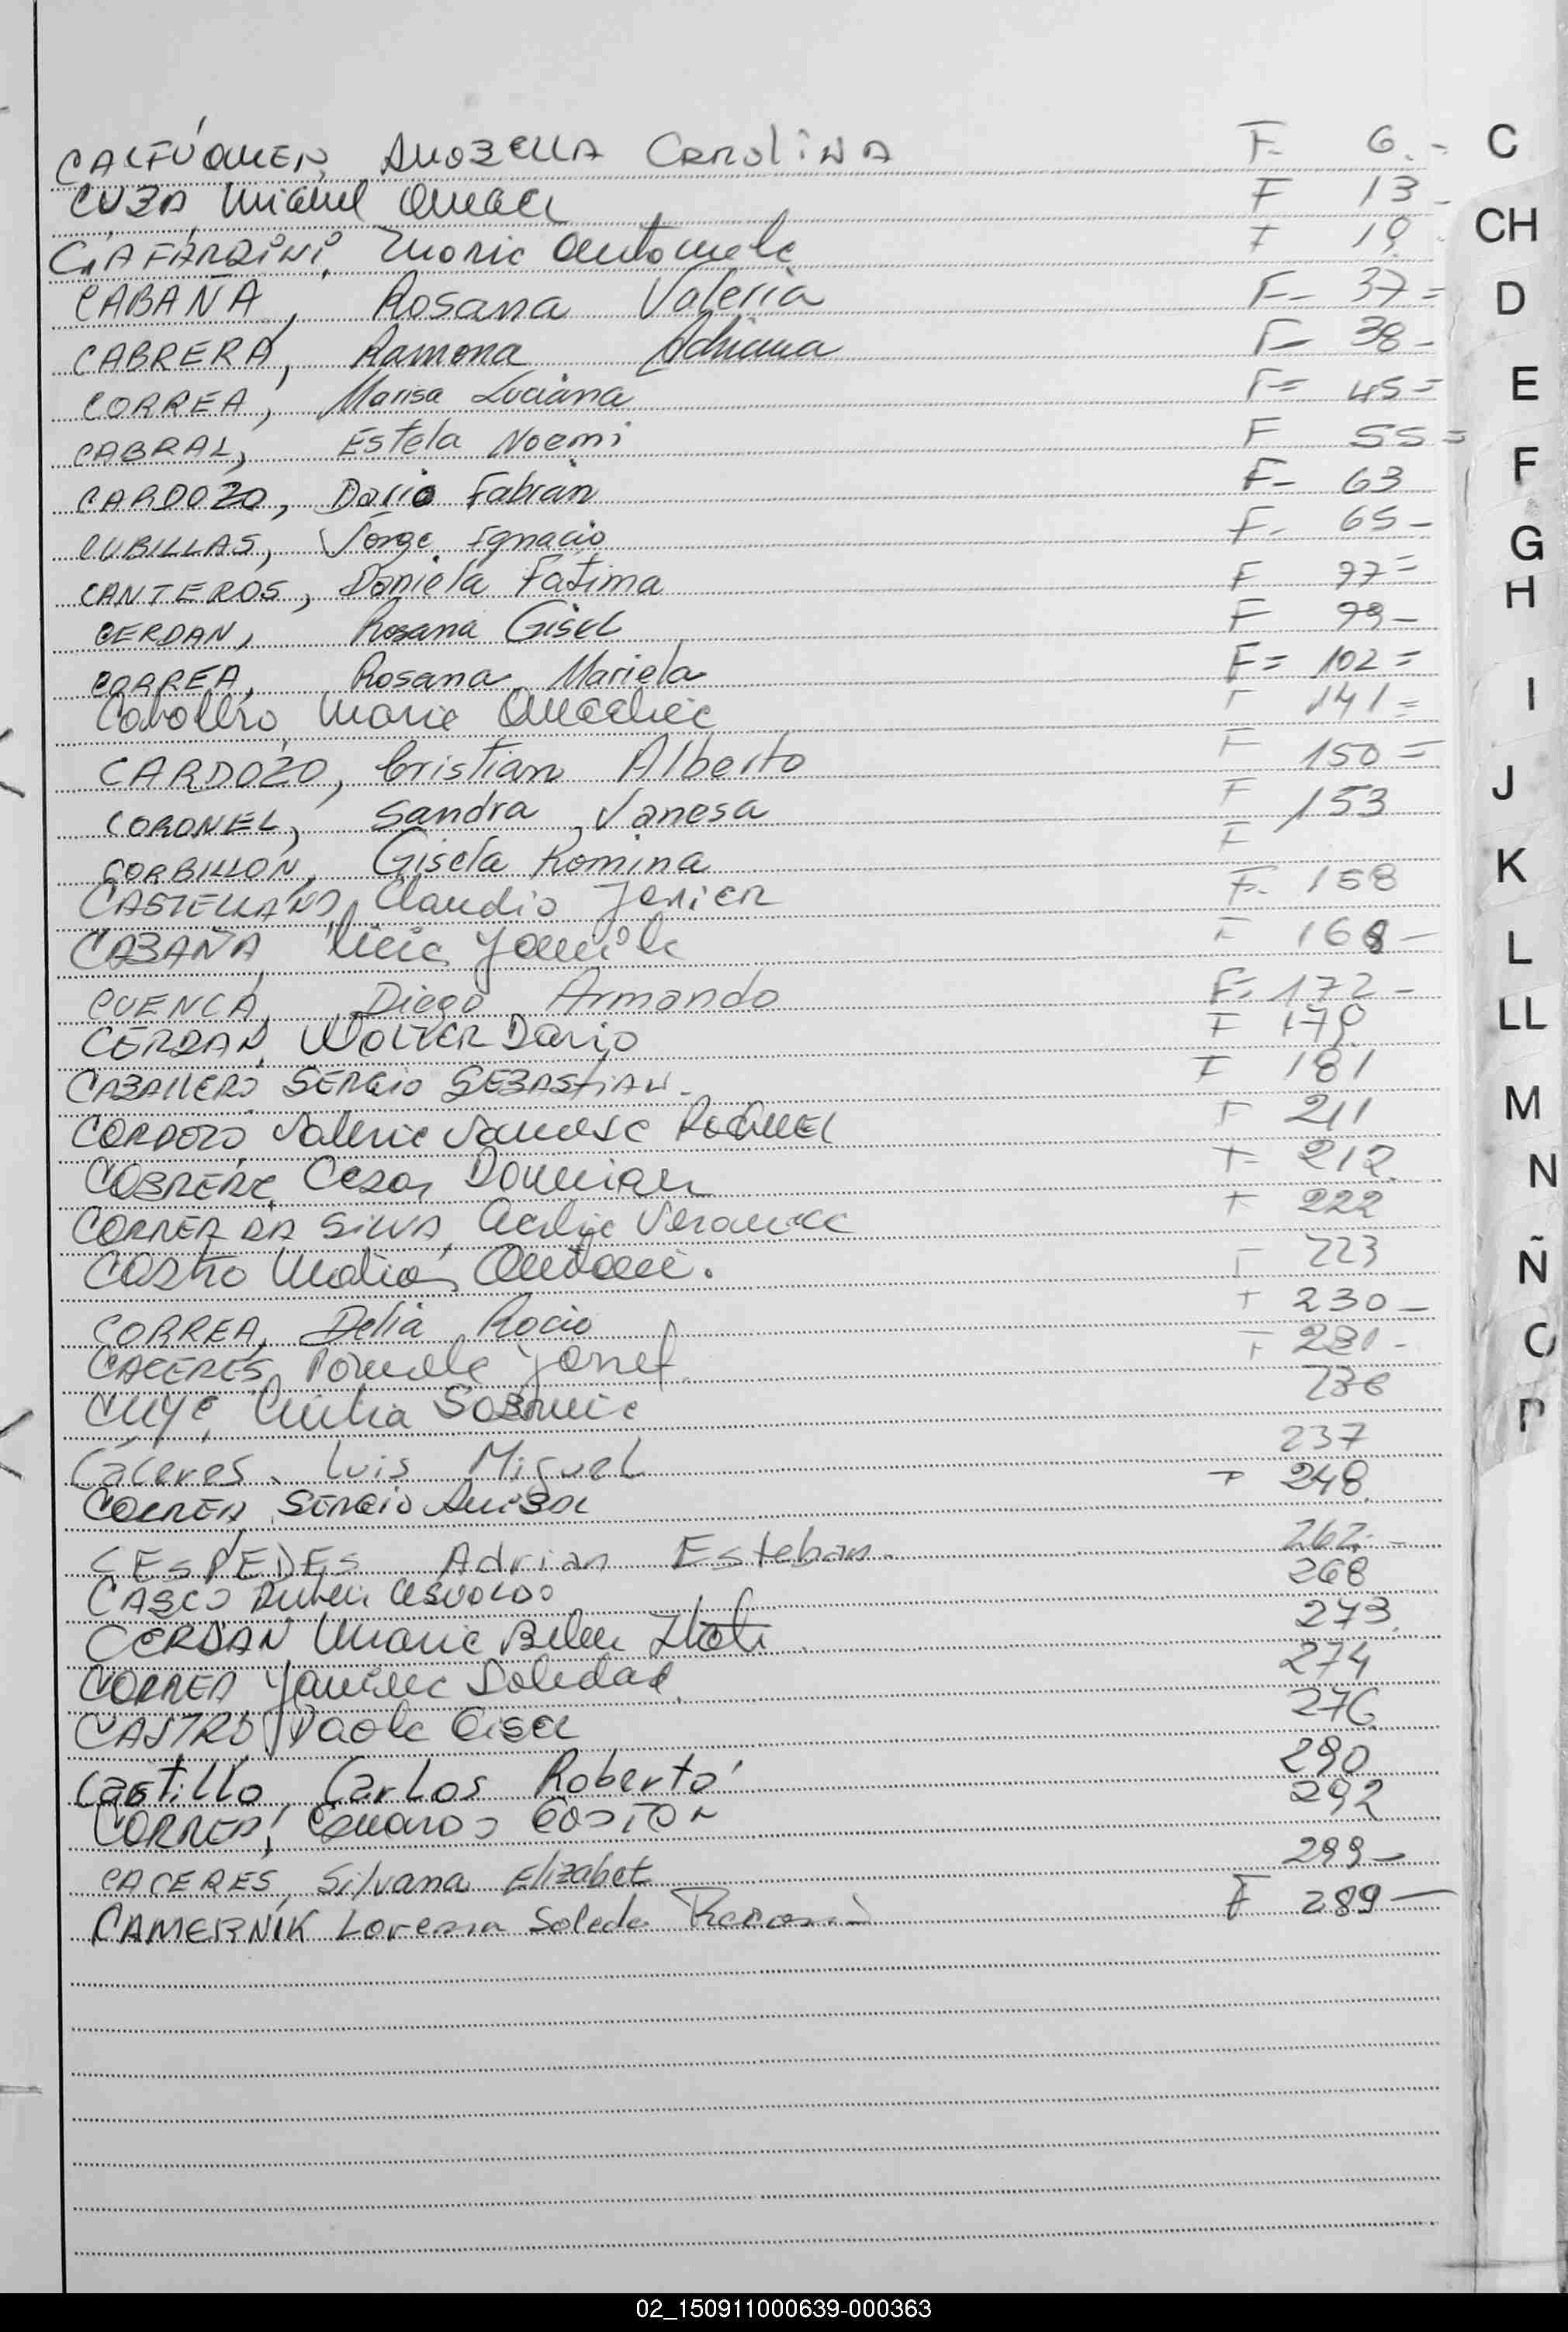 CALFÚQUEN, ANABELLA CAROLINA F- 6.-
CUZA Miguel Angel F 13-
CIAFARDINI, Maria Antonela F 19.
CABAÑA, Rosana Valeria F- 37=
CABRERA, Ramona Adriana F- 38-
CORREA, Marisa Luciana F= 45=
CABRAL, Estela Noemi F 55=
CARDOZO, Dario Fabian F- 63
CUBILLAS, Jorge Ignacio F- 65-
CANTEROS, Daniela Fatima F 97=
CERDAN, Rosana Gisel F 99-
CORREA, Rosana Mariela F= 102=
Caballero, Maria F 141=
CARDOZO, Cristian Alberto F 150=
CORONEL, Sandra Vanesa F 153
CORBILLON, Gisela Romina F
CASTELLANO, Claudio Javier F- 158
CABAÑA, Yamila F 168-
CUENCA, Diego Armando F- 172-
CERDAN, WALTER Dario F 179.
CABALLERO, SERGIO SEBASTIAN- F 181
CARDOZO, Valeria Vanesa RAQUEL F 211
CABRERA, Cesar Damian F- 212.
CORREA DA SILVA, Veronica F 222
CASTRO Matias Antonio. F 223
CORREA, Delia Rocio F 230-
CACERES, Pamela Janet. F 231-
Cintia 236
Cáceres, Luis Miguel 237
CORREA, SERGIO ANIBAL F 248.
CESPEDES Adrian Esteban. 262.-
CASCO Ruben OSVALDO 268
CERDAN Maria Belen Itati. 273.
CORREA Soledad. 274
CASTRO, Paola Gisel 276.
Castillo, Carlos Roberto 290
CORREA, GASTON 292
CACERES, Silvana Elizabet 299-
CAMERNIK Lorena Soledad F 289-
C
CH
D
E
F
G
H
I
J
K
L
LL
M
N
Ñ
O
P
02_150911000639-000363